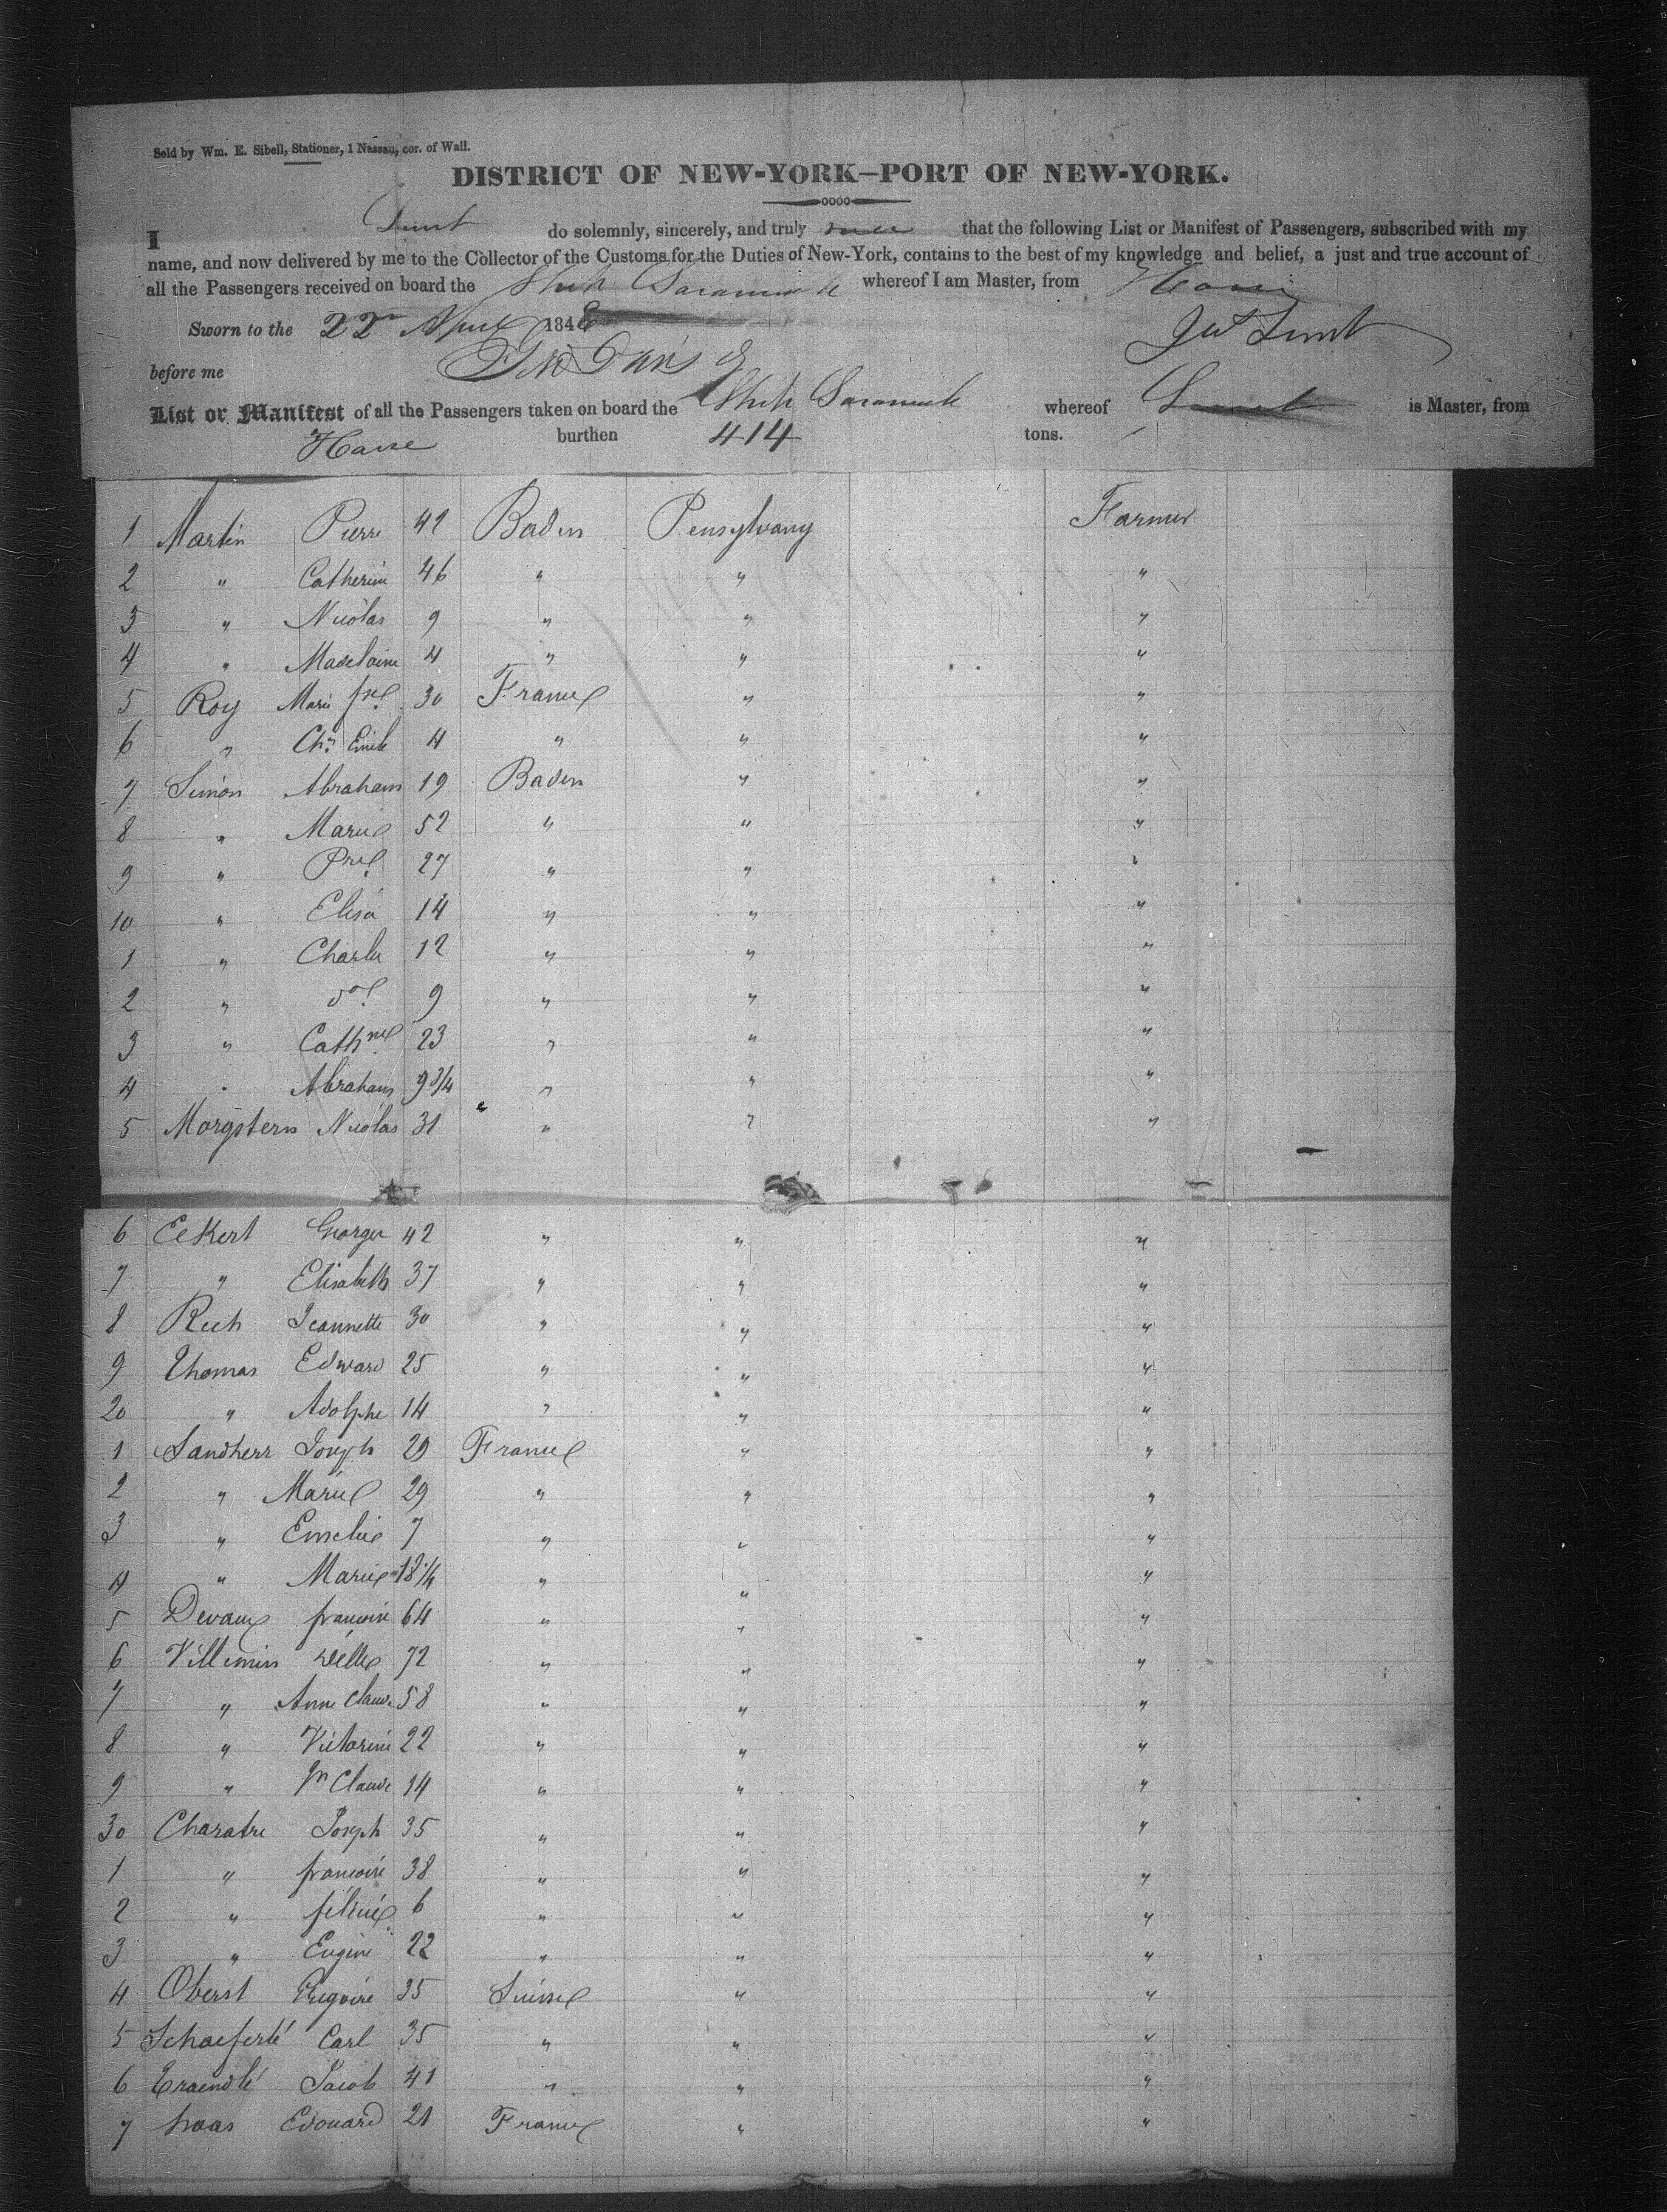 Sold by Wm. E. Sibell, Stationer, 1 Nassau, cor. of Wall.
DISTRICT OF NEW-YORK—PORT OF NEW-YORK.
I Lunt do solemnly, sincerely, and truly swear that the following List or Manifest of Passengers, subscribed with my
name, and now delivered by me to the Collector of the Customs for the Duties of New-York, contains to the best of my knowledge and belief, a just and true account of
all the Passengers received on board the Ship whereof I am Master, from Havre
Sworn to the 22 April 1848 Lunt
before me
List or Manifest of all the Passengers taken on board the Ship whereof Lunt is Master, from
Havre burthen 414 tons.
1 Martin Pierre 42 Baden Pensylvany Farmer
2 " Catherine 46 " " "
3 " Nicolas 9 " " "
4 " Madelaine 4 " " "
5 Roy Marie 30 France " "
6 " Chs Emile 4 " " "
7 Simon Abraham 19 Baden " "
8 " Marie 52 " " "
9 " 27 " " "
10 " Elisa 14 " " "
1 " Charles 12 " " "
2 " 9 " " "
3 " Cathne 23 " " "
4 " Abraham 9 3/4 " " "
5 Morgstern Nicolas 31 " " "
6 Eckert Georges 42 " " "
7 " Elisabeth 37 " " "
8 Rech Jeannette 30 " " "
9 Thomas Edward 25 " " "
20 " Adolphe 14 " " "
1 Sandherr Joseph 29 France " "
2 " Marie 29 " " "
3 " Emelie 7 " " "
4 " Marie " " "
5 Devaux francoise 64 " " "
6 Villemin 72 " " "
7 " Anne Claude 58 " " "
8 " Victorine 22 " " "
9 " Jn Claude 14 " " "
30 Charatre Joseph 35 " " "
1 " francoise 38 " " "
2 " félicie 6 " " "
3 " Eugene 22 " " "
4 Oberst Gregoire 35 Suisse " "
5 Schaeferlé Carl 35 " " "
6 Jacob 41 " " "
7 haas Edouard 21 France " "